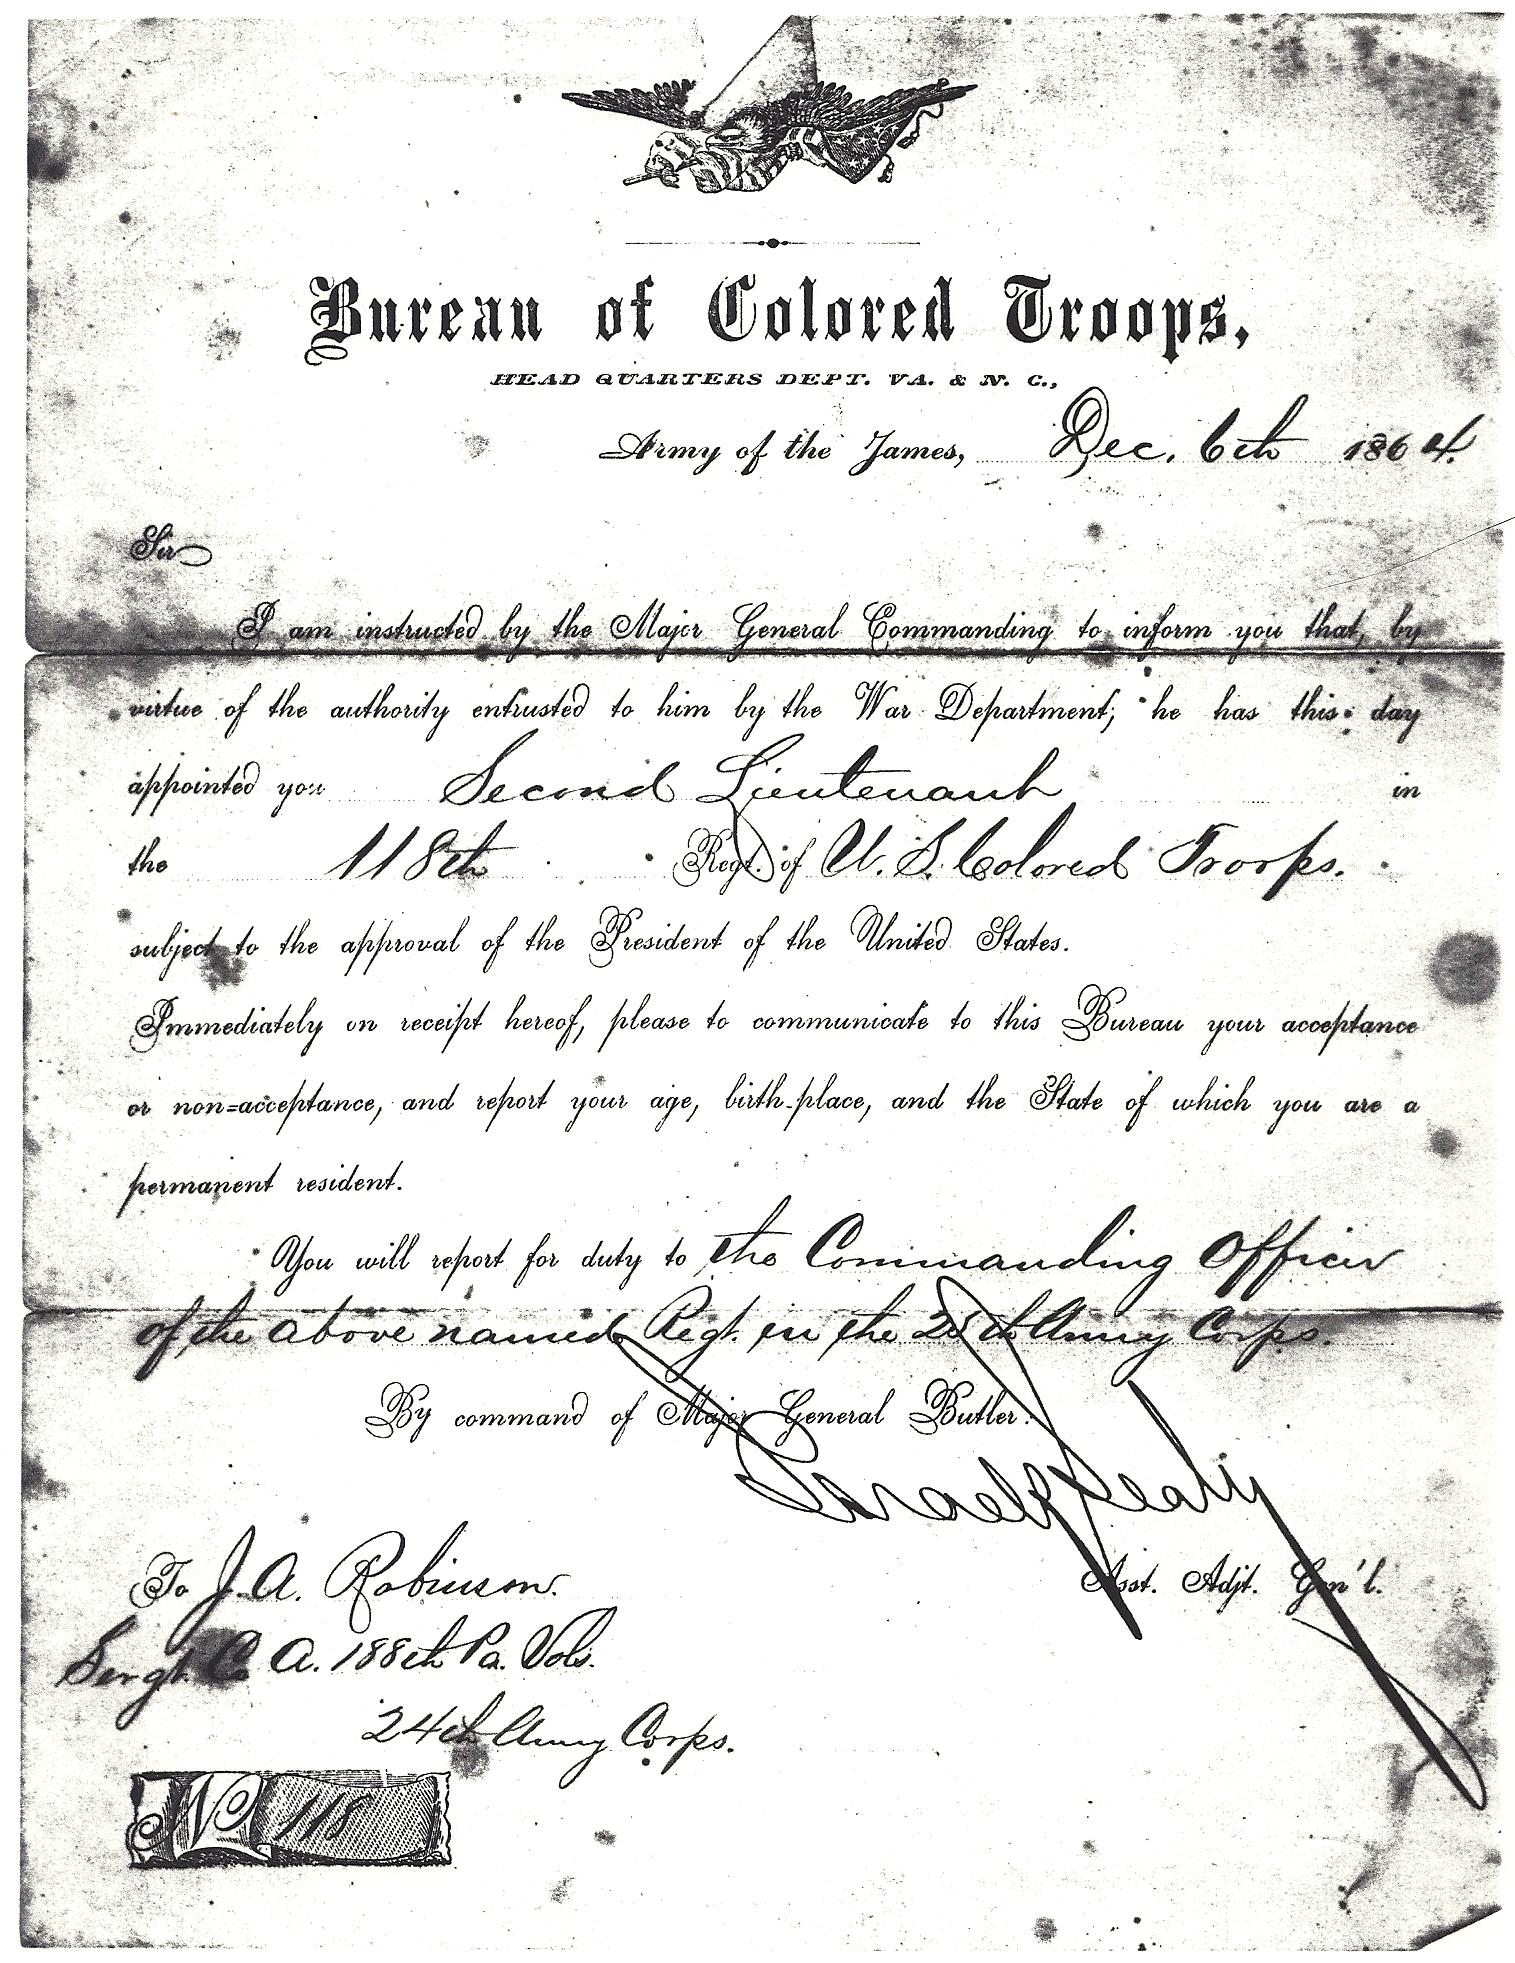 Bureau of Colored Troops,
HEAD QUARTERS DEPT. VA. & N. C.,
Army of the James, Dec. 6th 1864.
Sir
I am instructed by the Major General Commanding to inform you that, by
virtue of the authority entrusted to him by the War Department, he has this day
appointed you Second Lieutenant in
the 118th Regt. of U. S. Colored Troops.
subject to the approval of the President of the United States.
Immediately on receipt hereof, please to communicate to this Bureau your acceptance
or non-acceptance, and report your age, birth-place, and the State of which you are a
permanent resident.
You will report for duty to the Commanding Officer
of the above named Regt. in the 25th Army Corps.
By command of Major General Butler:
Israel R. Sealy
Asst. Adjt. Gen'l.
To J. A. Robinson.
Sergt. Co A. 188th Pa. Vols.
24th Army Corps.
No 118